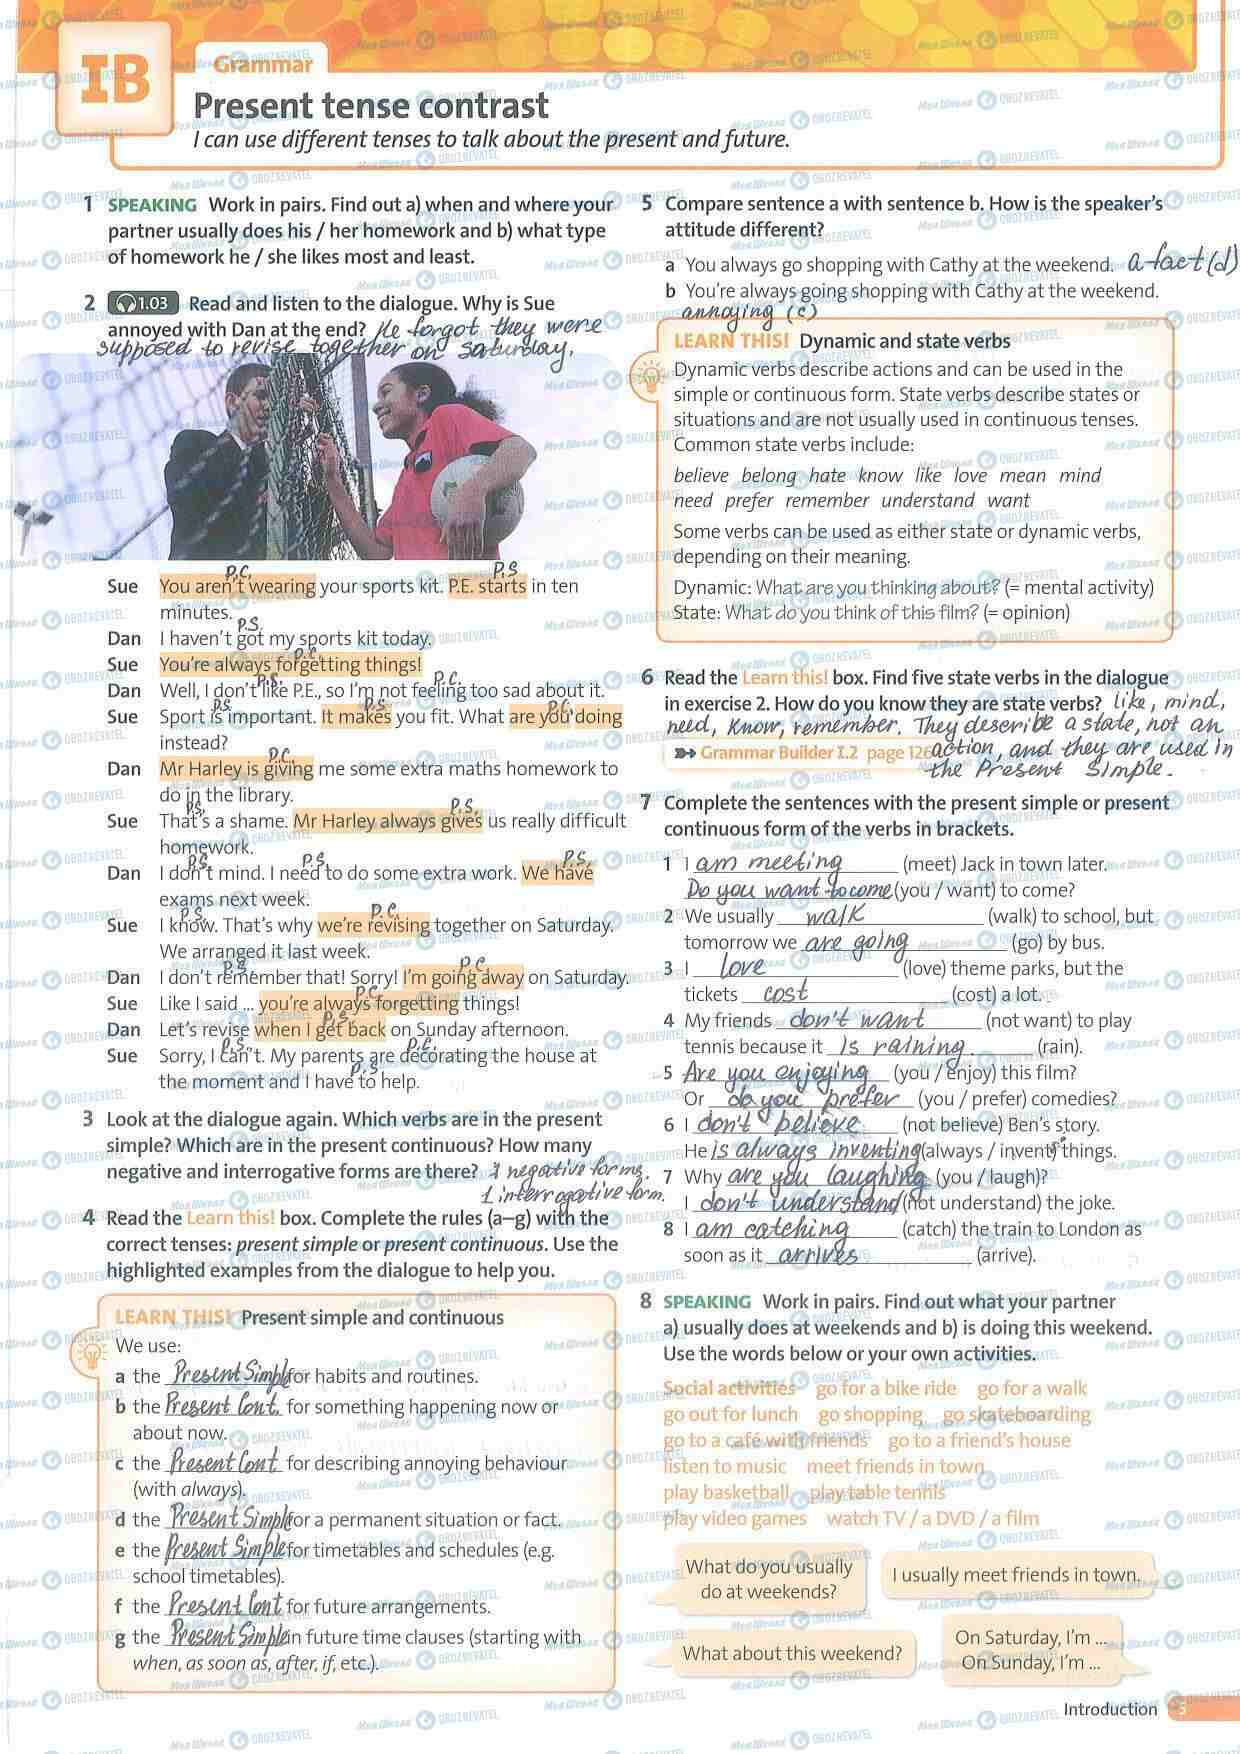 IB
Grammar
Present tense contrast
I can use different tenses to talk about the present and future.
1 SPEAKING Work in pairs. Find out a) when and where your
partner usually does his / her homework and b) what type
of homework he / she likes most and least.
2 1.03 Read and listen to the dialogue. Why is Sue
annoyed with Dan at the end? He forgot they were
supposed to revise together on Saturday.
P.C. P.S
Sue You aren't wearing your sports kit. P.E. starts in ten
minutes.
P.S.
Dan I haven't got my sports kit today.
P.C.
Sue You're always forgetting things!
P.S. P.C.
Dan Well, I don't like P.E., so I'm not feeling too sad about it.
P.S. P.S P.C.
Sue Sport is important. It makes you fit. What are you doing
instead?
P.C.
Dan Mr Harley is giving me some extra maths homework to
do in the library.
P.S. P.S.
Sue That's a shame. Mr Harley always gives us really difficult
homework.
P.S. P.S P.S.
Dan I don't mind. I need to do some extra work. We have
exams next week.
P.S. P.C.
Sue I know. That's why we're revising together on Saturday.
We arranged it last week.
P.S. P.C
Dan I don't remember that! Sorry! I'm going away on Saturday.
P.C.
Sue Like I said ... you're always forgetting things!
P.S.
Dan Let's revise when I get back on Sunday afternoon.
P.S. P.C.
Sue Sorry, I can't. My parents are decorating the house at
P.S
the moment and I have to help.
3 Look at the dialogue again. Which verbs are in the present
simple? Which are in the present continuous? How many
negative and interrogative forms are there? negative forms.
1 interrogative form.
4 Read the Learn this! box. Complete the rules (a–g) with the
correct tenses: present simple or present continuous. Use the
highlighted examples from the dialogue to help you.
LEARN THIS! Present simple and continuous
We use:
a the Present Simple for habits and routines.
b the Present Cont. for something happening now or
about now.
c the Present Cont for describing annoying behaviour
(with always).
d the Present Simple for a permanent situation or fact.
e the Present Simple for timetables and schedules (e.g.
school timetables).
f the Present Cont for future arrangements.
g the Present Simple in future time clauses (starting with
when, as soon as, after, if, etc.).
5 Compare sentence a with sentence b. How is the speaker's
attitude different?
a You always go shopping with Cathy at the weekend. a fact (d)
b You're always going shopping with Cathy at the weekend.
annoying (c)
LEARN THIS! Dynamic and state verbs
Dynamic verbs describe actions and can be used in the
simple or continuous form. State verbs describe states or
situations and are not usually used in continuous tenses.
Common state verbs include:
believe belong hate know like love mean mind
need prefer remember understand want
Some verbs can be used as either state or dynamic verbs,
depending on their meaning.
Dynamic: What are you thinking about? (= mental activity)
State: What do you think of this film? (= opinion)
6 Read the Learn this! box. Find five state verbs in the dialogue
in exercise 2. How do you know they are state verbs? like, mind,
need, know, remember. They describe a state, not an
Grammar Builder I.2 page 126 action, and they are used in
the Present Simple.
7 Complete the sentences with the present simple or present
continuous form of the verbs in brackets.
1 I am meeting (meet) Jack in town later.
Do you want to come (you / want) to come?
2 We usually walk (walk) to school, but
tomorrow we are going (go) by bus.
3 I love (love) theme parks, but the
tickets cost (cost) a lot.
4 My friends don't want (not want) to play
tennis because it is raining. (rain).
5 Are you enjoying (you / enjoy) this film?
Or do you prefer (you / prefer) comedies?
6 I don't believe (not believe) Ben's story.
He is always inventing (always / invent) things.
7 Why are you laughing (you / laugh)?
I don't understand (not understand) the joke.
8 I am catching (catch) the train to London as
soon as it arrives (arrive).
8 SPEAKING Work in pairs. Find out what your partner
a) usually does at weekends and b) is doing this weekend.
Use the words below or your own activities.
Social activities go for a bike ride go for a walk
go out for lunch go shopping go skateboarding
go to a café with friends go to a friend's house
listen to music meet friends in town
play basketball play table tennis
play video games watch TV / a DVD / a film
What do you usually
do at weekends?
I usually meet friends in town.
What about this weekend?
On Saturday, I'm ...
On Sunday, I'm ...
Introduction 5